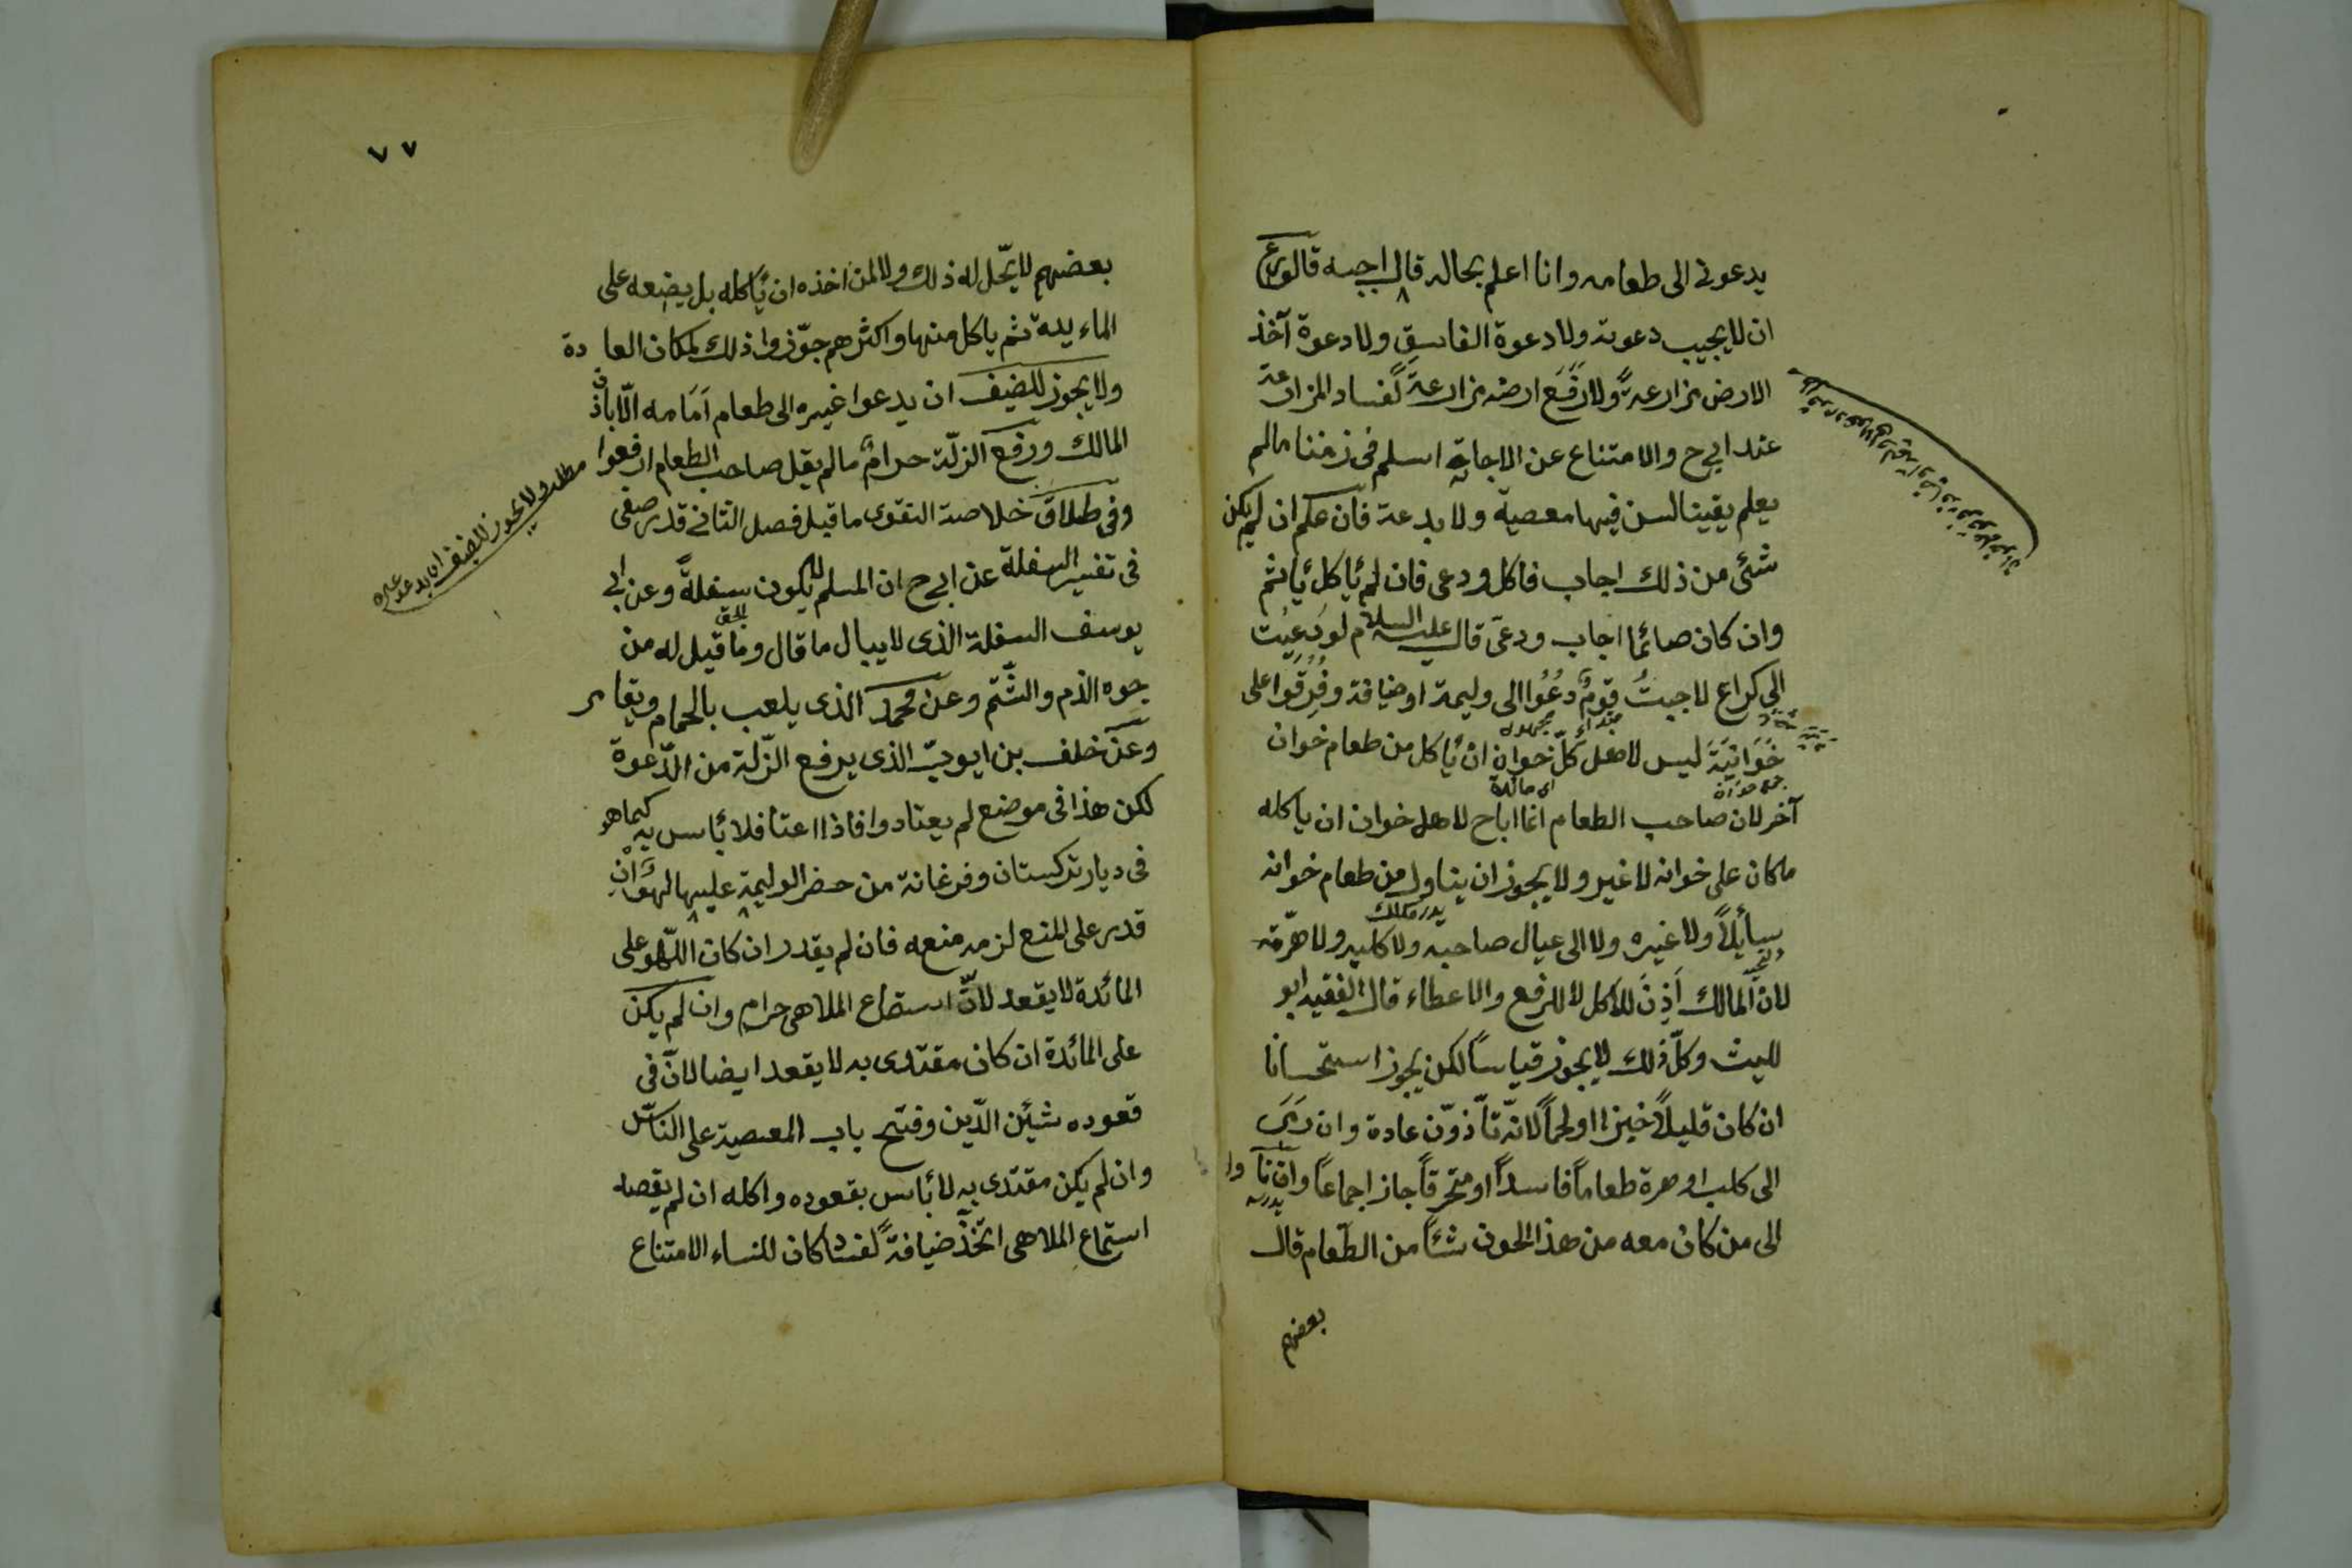 يدعونى الى طعامه وانا اعلم بحاله قال اجبه قالوا
ان لا يجيب دعوته ولا دعوة الفاسق ولا دعوة آخذ
الارض مزارعة ولا رفع ارضه مزارعة لفساد المزارعة
عند ابى ح والامتناع عن الاجابة اسلم فى زمننا مالم
يعلم يقينا لسن فيها معصية ولا بدعة فان علم ان لم يكن
شئ من ذلك اجاب فاكل ودعى فان لم يأكل يأثم
وان كان صائما اجاب ودعى قال عليه السلام لو دعيت
الى كراع لاجبت قوم دعوا الى وليمة او ضيافة وفرقوا على
مبتداء مجهول
خوانية ليس لاهل كل خوان ان يأكل من طعام خوان
اى مائدة
آخر لان صاحب الطعام انما اباح لاهل خوان ان ياكله
ماكان على خوانه لا غير ولا يجوز ان يناول من طعام خوانه
سائلا ولا غيره ولا الى عيال صاحبه ولا كلبه ولا هرته
لان المالك اذن للاكل لا للرفع والاعطاء قال الفقيه ابو
الليث وكل ذلك لا يجوز قياسا لكن يجوز استحسانا
ان كان قليلا خبزا او لحما لانه تأذون عادة وان رمى
الى كلب او هرة طعاما فاسدا او متحرقا جاز اجماعا وان نا وا
الى من كان معه من هذا الخون شئا من الطعام قال
بعضهم
٧٧
بعضهم لا يحل له ذلك ولا لمن اخذه ان يأكله بل يضعه على
الماء يدة ثم ياكل منها واكثرهم جوزوا ذلك لمكان العادة
ولا يجوز للضيف ان يدعوا غيره الى طعام امامه الا باذن
المالك ورفع الزلة حرام مالم يقل صاحب الطعام ارفعوا
مطلب ولا يجوز للضيف ان يدعو غيره
وفى طلاق خلاصة الفتوى ما قيل فصل الثانى قدر صفى
فى تفسير السفلة عن ابى ح ان المسلم لا يكون سفلة وعن ابى
يوسف السفلة الذى لا يبال ما قال وما قيل له من
جوه الذم والشتم وعن محمد الذى يلعب بالحمام ويقامر
وعن خلف بن ايوب الذى يرفع الزلة من الدعوة
لكن هذا فى موضع لم يعتادوا فاذا اعتا فلا بأس به كما هو
فى ديار تركستان وفرغانة من حضر الوليمة عليها لهو ان
قدر على المنع لزمه منعه فان لم يقدر ان كان اللهو على
المائدة لا يقعد لان استماع الملاهى حرام وان لم يكن
على المائدة ان كان مقتدى به لا يقعد ايضا لان فى
قعوده شين الدين وفتح باب المعصية على الناس
وان لم يكن مقتدى به لا بأس بقعوده واكله ان لم يقصد
استماع الملاهى اتخذ ضيافة لفساد كان للنساء الامتناع